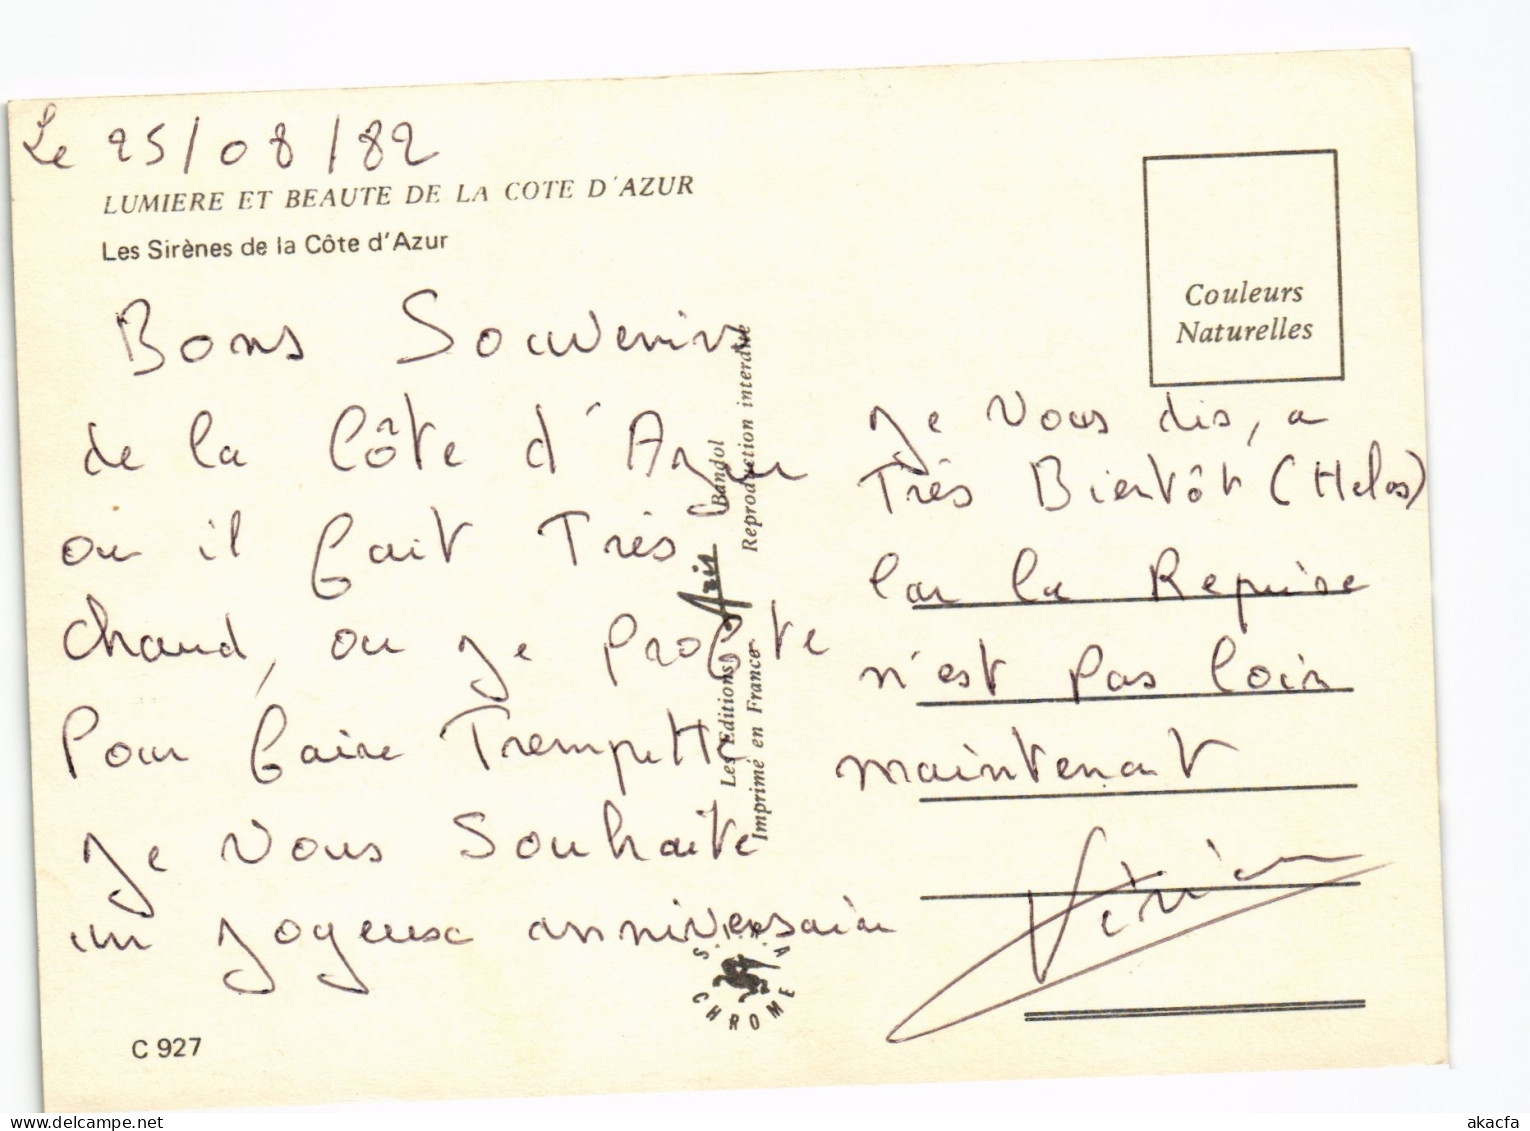 Le 25/08/82
LUMIERE ET BEAUTE DE LA COTE D'AZUR
Les Sirènes de la Côte d'Azur
Bons Souvenirs
de la Côte d'Azur
ou il fait Très
chaud, ou je profite
Pour faire Trempette
Je Vous Souhaite
un Joyeux anniversaire
C 927
Les Editions Aris Bandol
Imprimé en France
Reproduction interdite
CHROME
Couleurs
Naturelles
Je Vous dis, a
Très Bientôt (Helas)
Car la Reprise
n'est pas loin
maintenant
delcampe.net
akacfa